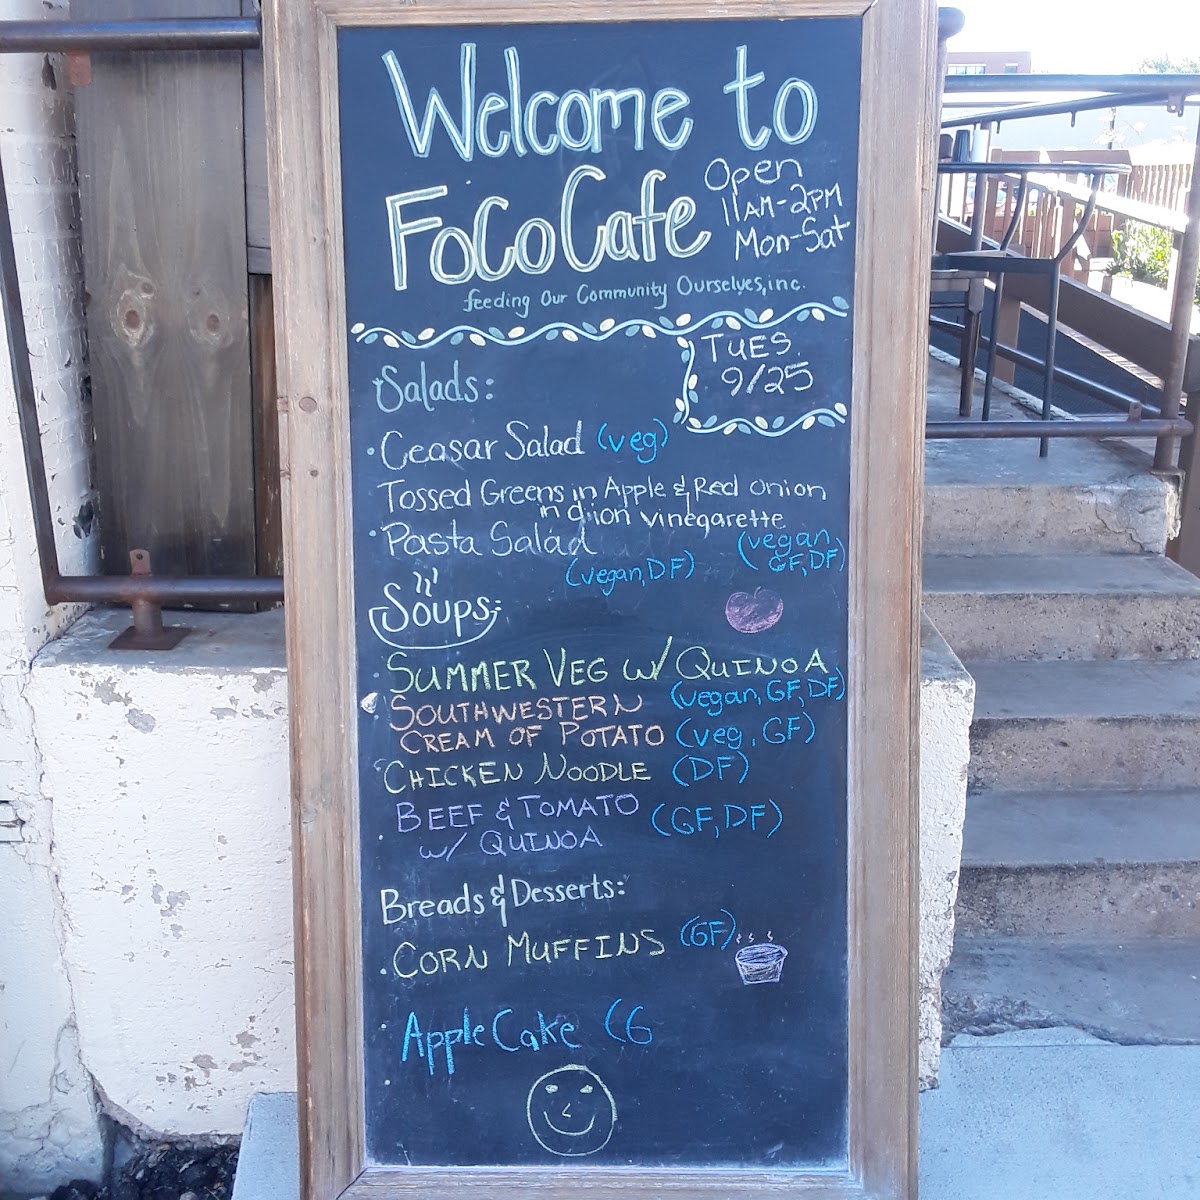 Welcome to
FoCo Cafe
Open
11AM-2PM
Mon-Sat
feeding Our Community Ourselves, inc.
TUES.
9/25
Salads:
· Ceasar Salad (veg)
Tossed Greens in Apple & Red onion
vinegarette
(vegan,
GF, DF)
· Pasta Salad
(vegan, DF)
Soups:
SUMMER VEG W/ QUINOA
(vegan, GF, DF)
SOUTHWESTERN
CREAM OF POTATO (veg, GF)
CHICKEN NOODLE (DF)
BEEF & TOMATO
W/ QUINOA (GF, DF)
Breads & Desserts:
· CORN MUFFINS (GF)
Apple Cake (G